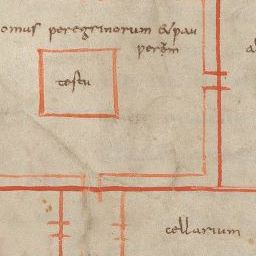 omus peregrinorum & pau
perum
testu
cellarium